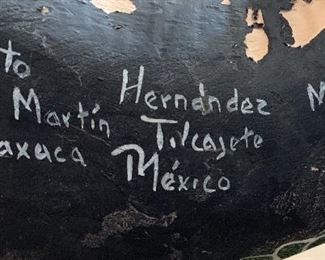 to Hernández M
Martín Tilcajete
axaca México